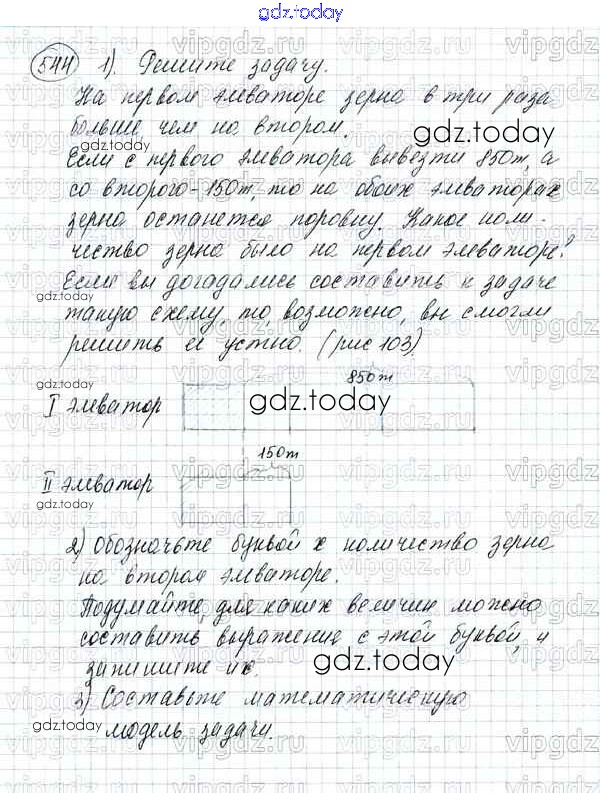 gdz.today
544 1). Решите задачу.
На первом элеваторе зерна в три раза
больше чем на втором.
gdz.today
Если с первого элеватора вывезти 850т, а
со второго - 150т, то на обоих элеваторах
зерна останется поровну. Какое коли-
чество зерна было на первом элеваторе?
Если вы догадались составить к задаче
gdz.today
такую схему, то, возможно, вы смогли
решить её устно. (рис 103).
850т
I элеватор
gdz.today
150т
II элеватор
2) Обозначьте буквой х количество зерна
на втором элеваторе.
Подумайте, для каких величин можно
составить выражения с этой буквой, и
запишите их.
gdz.today
3) Составьте математическую
gdz.today
модель задачи.
vipgdz.ru